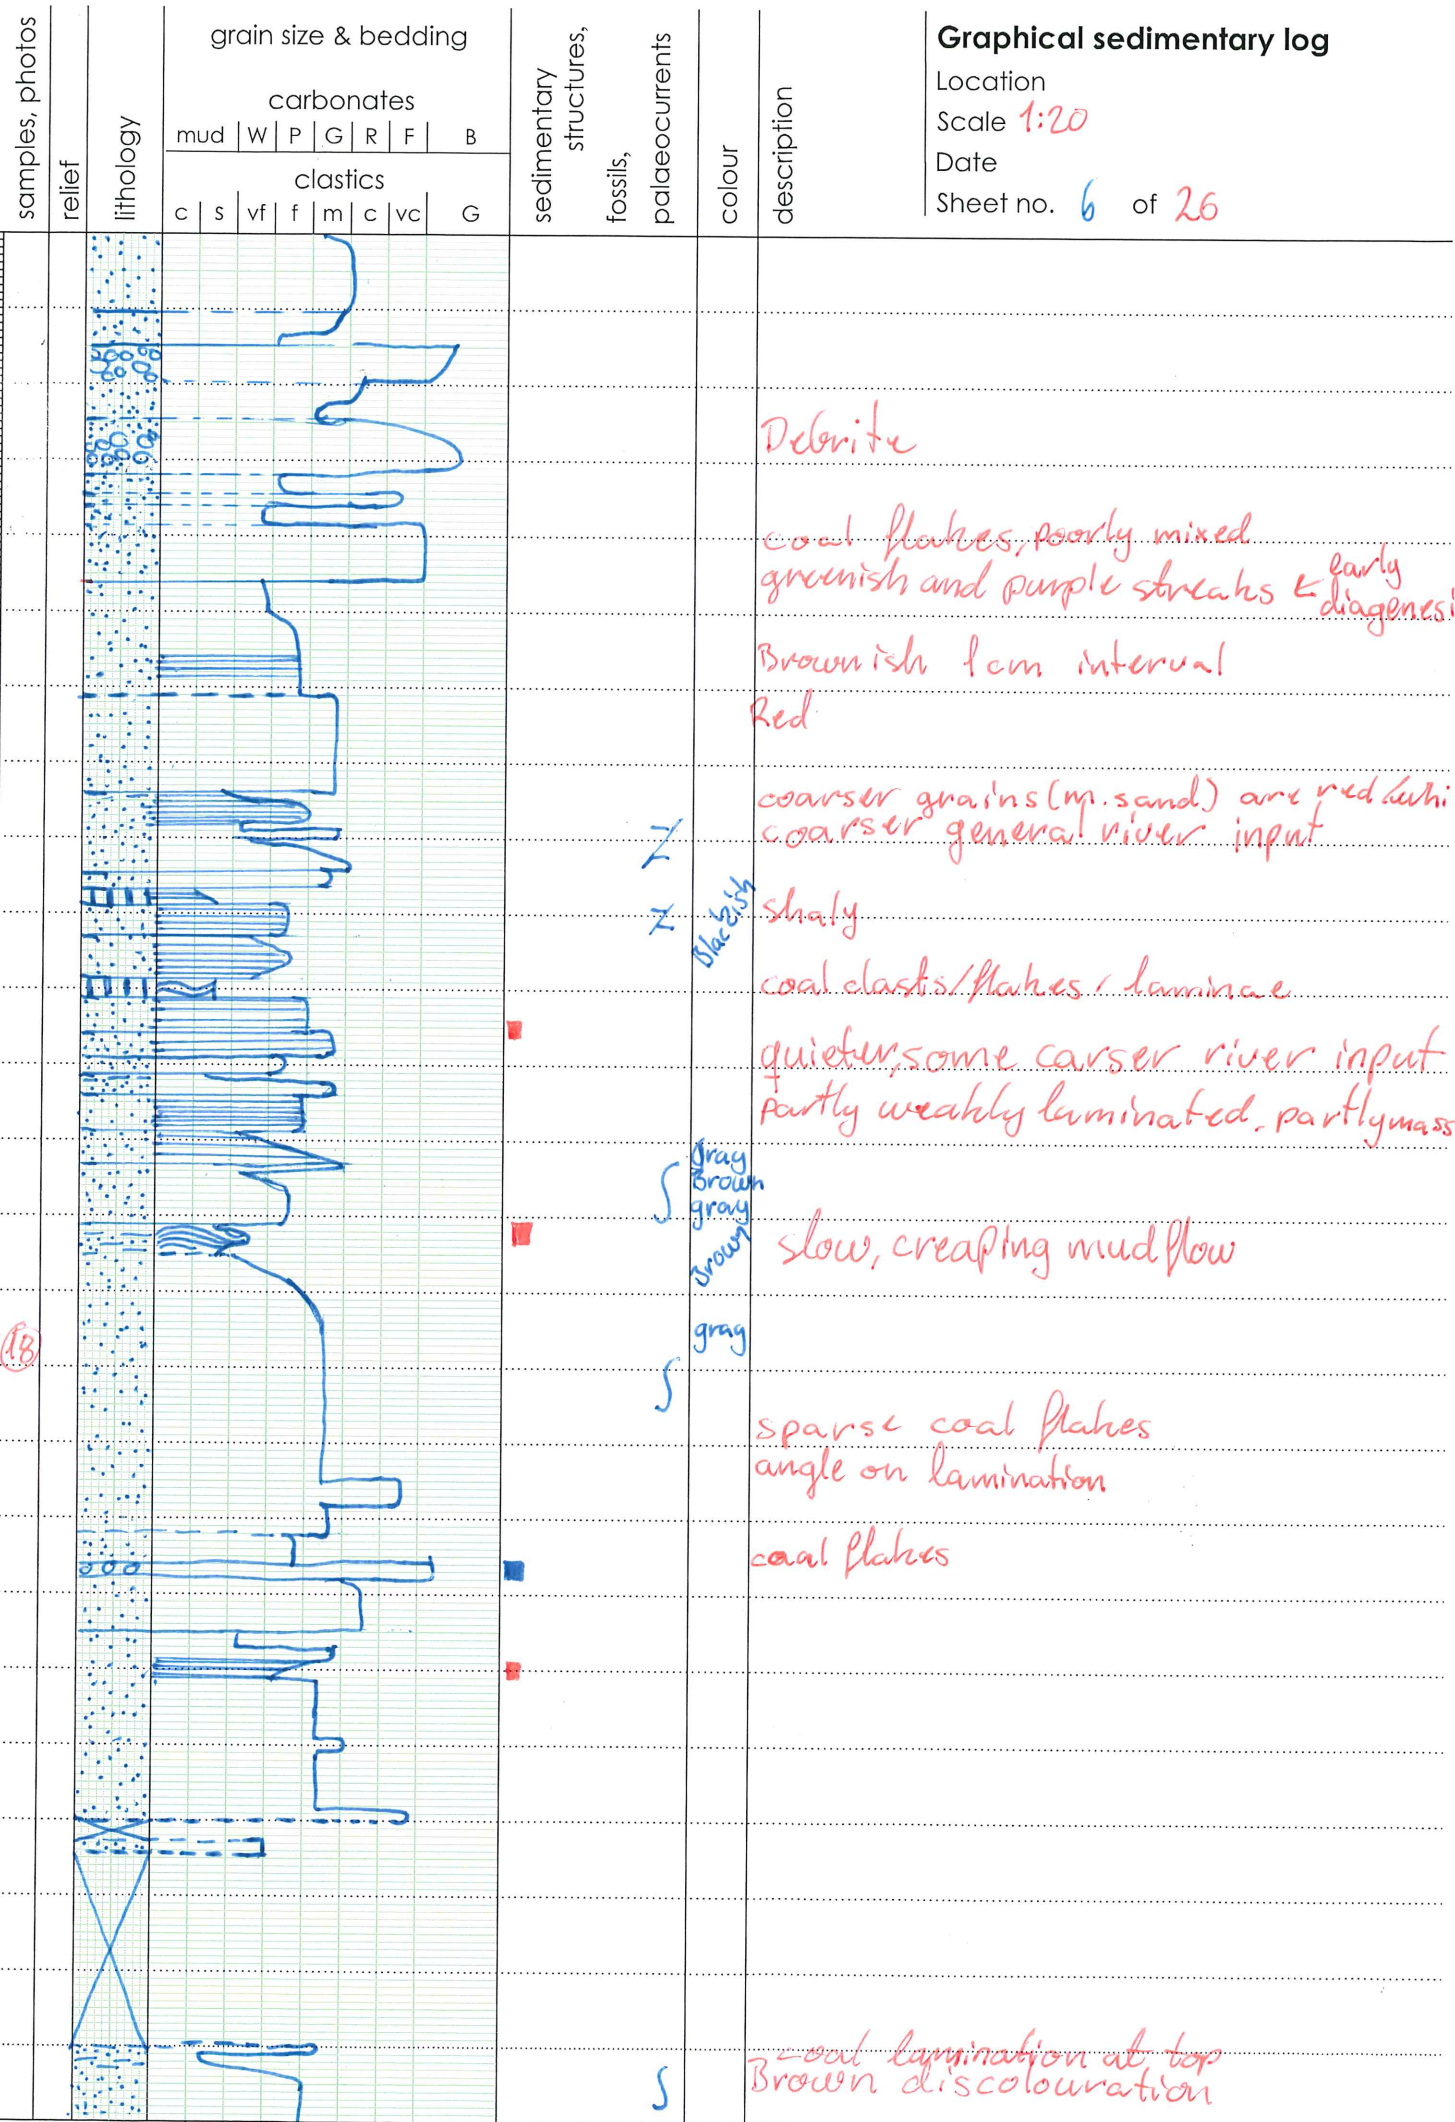 samples, photos
relief
lithology
grain size & bedding
carbonates
mud W P G R F B
clastics
c s vf f m c vc G
sedimentary
structures,
fossils,
palaeocurrents
colour
description
Graphical sedimentary log
Location
Scale 1:20
Date
Sheet no. 6 of 26
Debrite
coal flakes, poorly mixed
greenish and purple streaks ← early
diagenesi
Brownish 1cm interval
Red
coarser grains (m. sand) are red/whi
coarser general river input
Blackish
shaly
coal clasts/flakes/laminae
quieter, some carser river input
Partly weakly laminated, partly mass
Gray
Brown
gray
Brown
slow, creaping mudflow
gray
18
sparse coal flakes
angle on lamination
coal flakes
coal lamination at top
Brown discolouration